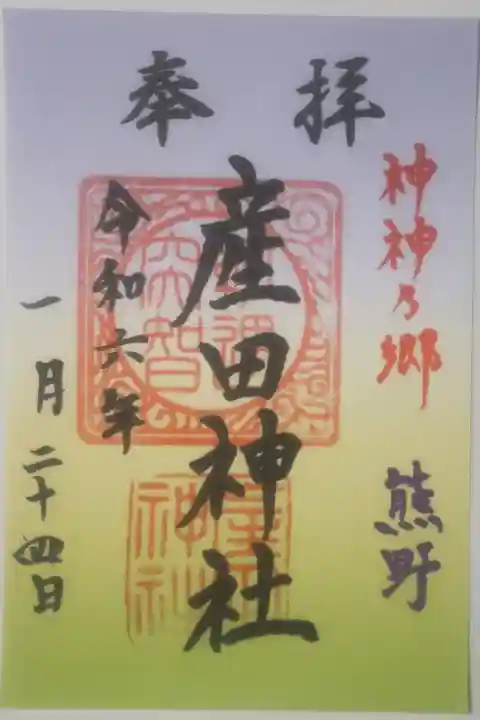 奉拝
神神乃郷
熊野
産田神社
令和六年
一月二十四日